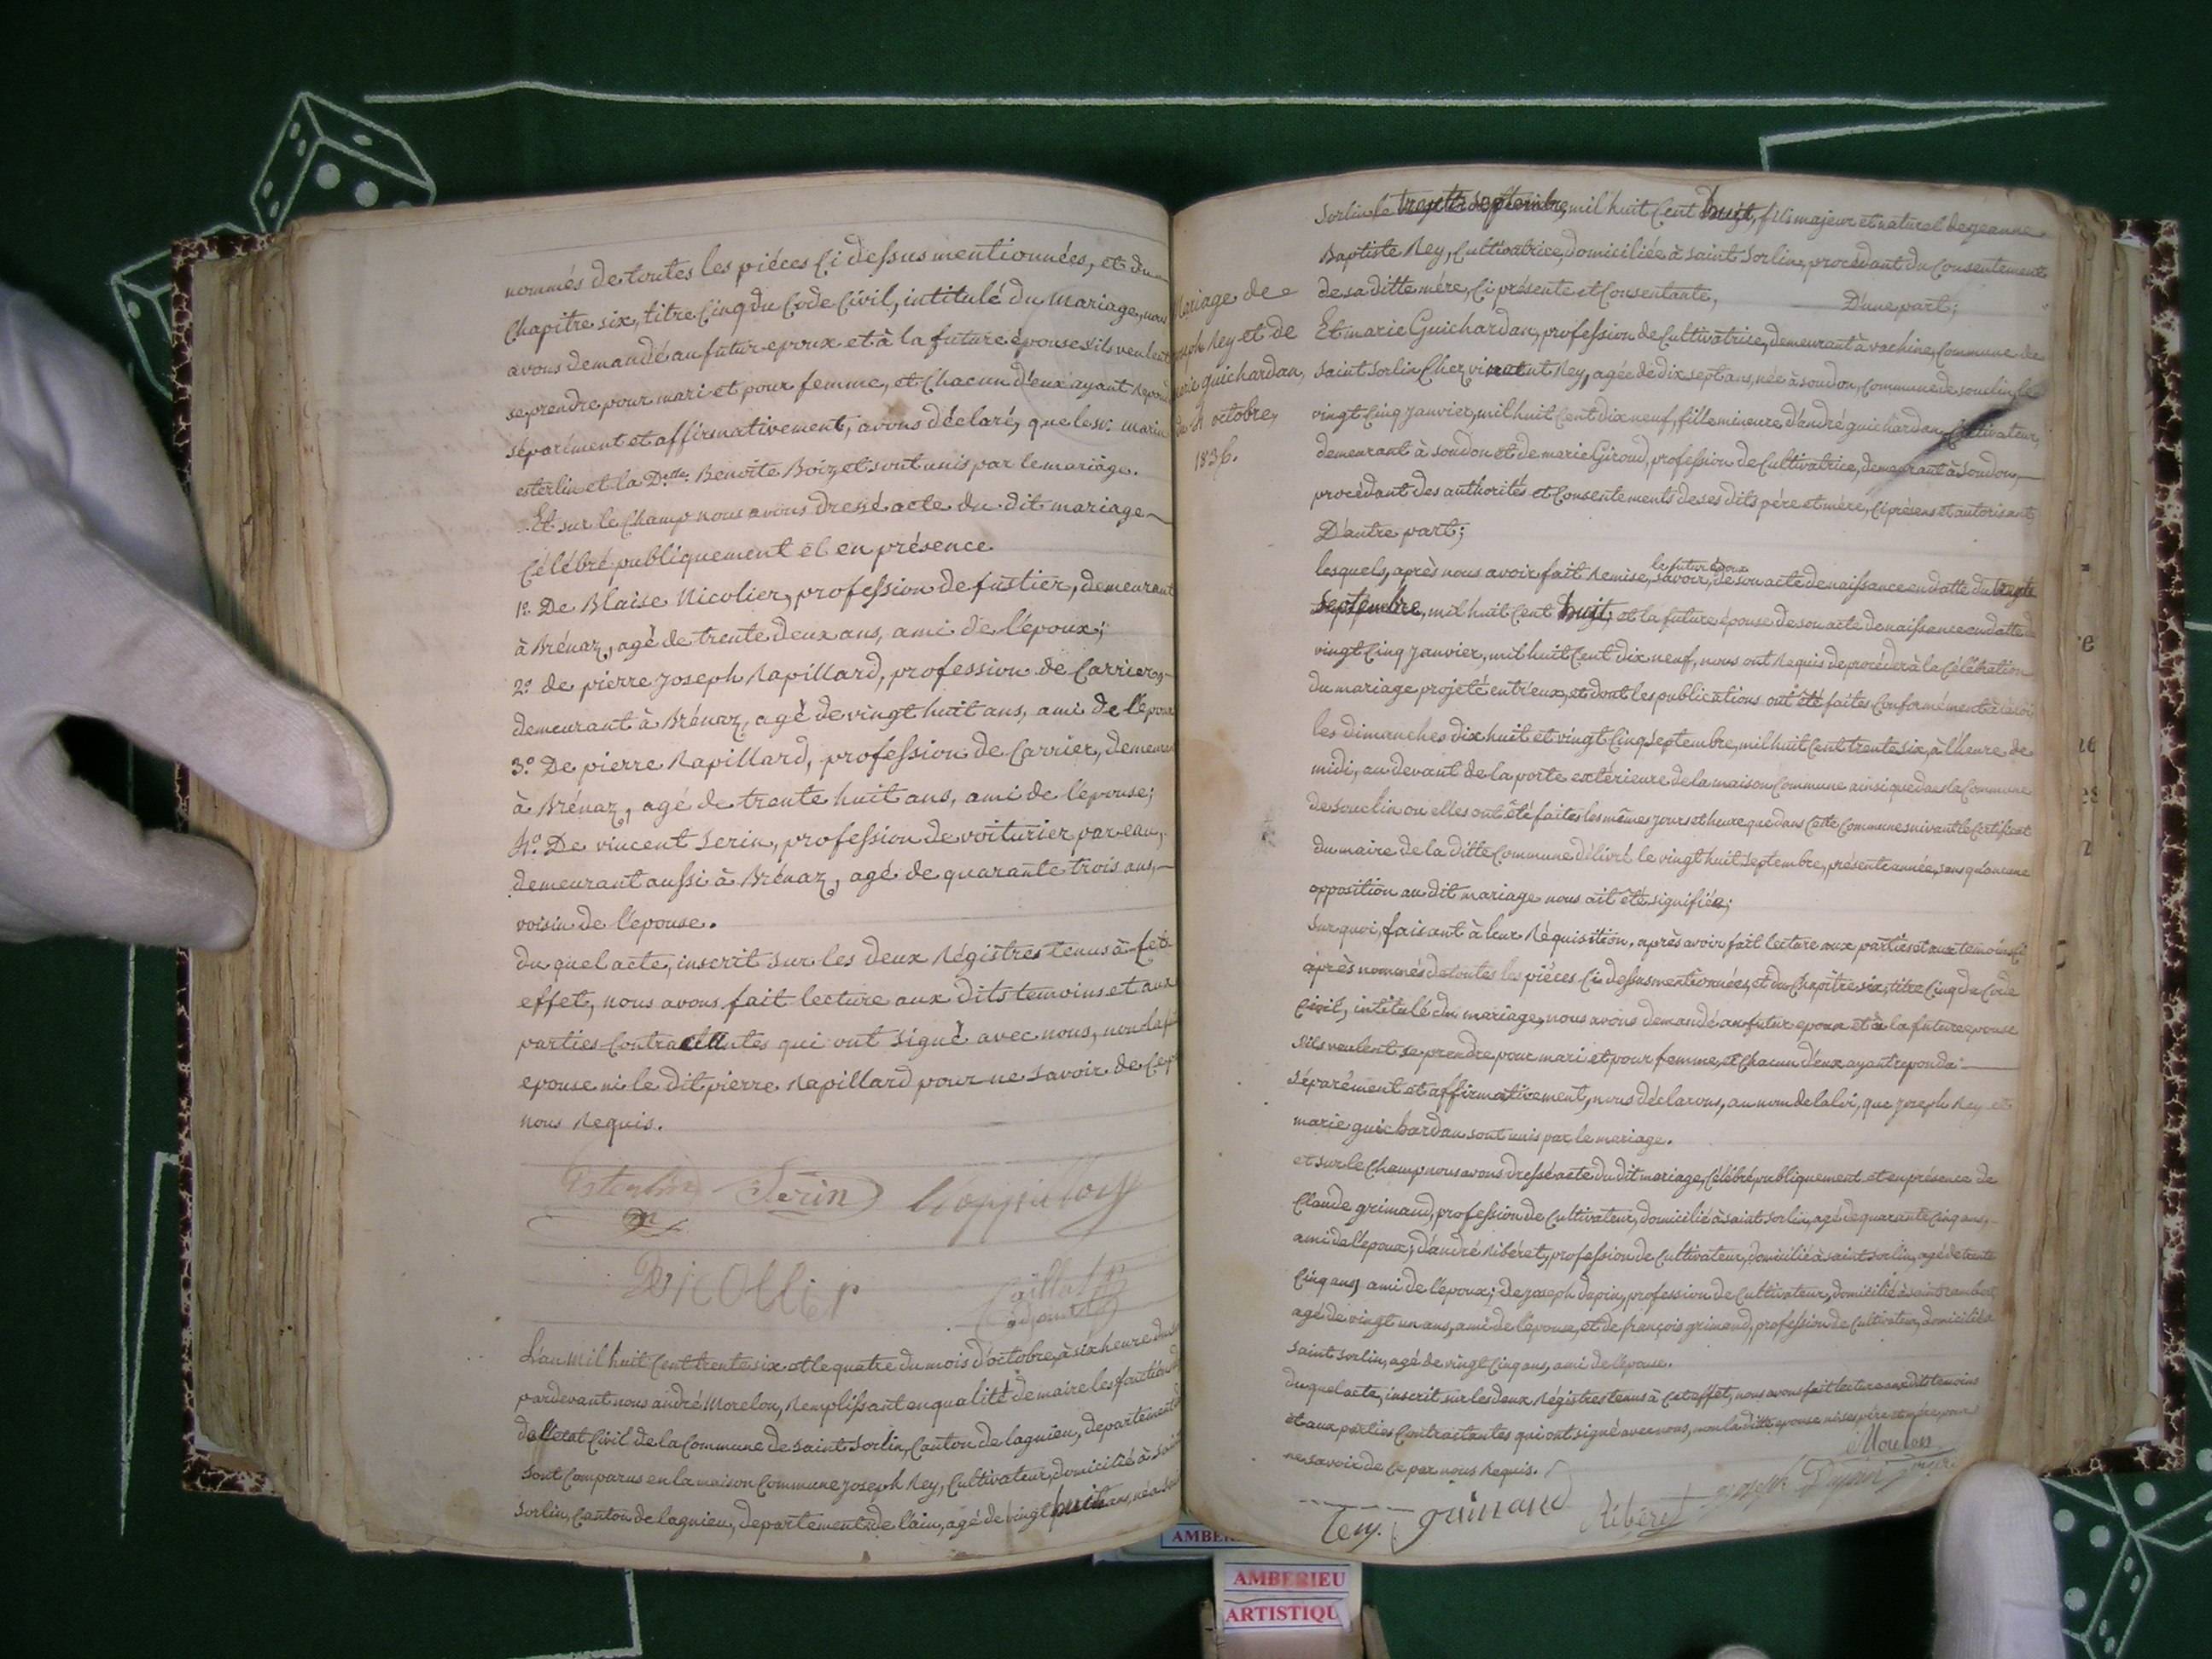 nommés de toutes les piéces Ci dessus mentionnées, et du
Chapitre six, titre Cinq du Code Civil, intitulé du mariage, nous
avons demandé au futur epoux et à la future épouse s'ils veulent
se prendre pour mari et pour femme, et Chacun d'eux ayant Repon
séparément et affirmativement, avons déclaré, que les
esterlin et la Dlle. Benoite Boizet sont unis par le mariâge.
Et sur le Champ nous avons dressé acte du dit mariage
Célébré publiquement et en présence
1º. De Blaise Nicolier, profession de fustier, demeurant
à Brénaz, agé de trente deux ans, ami de l'époux;
2º. de pierre joseph Rapillard, profession de Carrier,
demeurant à Brénaz, agé de vingt huit ans, ami de l'epoux
3º. De pierre Rapillard, profession de Carrier, demeuran
à Brénaz, agé de trente huit ans, ami de l'epouse;
4º. De vincent Serin, profession de voiturier par eau,
demeurant aussi à Brénaz, agé de quarante trois ans,
voisin de l'epouse.
du quel acte, inscrit sur les deux Régistres tenus à Cet
effet, nous avons fait lecture aux dits temoins et aux
parties Contractantes qui ont signé avec nous, non la
epouse ni le dit pierre Rapillard pour ne savoir de Ce p
nous Requis.
Esterlin Serin
Nicollier
Caillat
adjoint
L'an mil huit Cent trente six et le quatre du mois d'octobre, à six heure du
pardevant nous andré Morelon, Remplissant en qualité de maire les fonctions
de l'etat Civil de la Commune de saint Sorlin, Canton de lagnieu, departement
sont Comparus en la maison Commune joseph Rey, Cultivateur, domicilié à sain
Sorlin, Canton de lagnieu, departement de l'ain, agé de vingt huit ans, né à
Mariage de
joseph Rey et de
marie guichardan,
du 4 octobre,
1836.
Sorlin le trente septembre, mil huit Cent huit, fils majeur et naturel de jeanne
Baptiste Rey, Cultivatrice, domiciliée à saint Sorlin, procédant du Consentement
de sa ditte mére, Ci présente et Consentante, D'une part;
Et marie Guichardan, profession de Cultivatrice, demeurant à vachine, Commune de
saint Sorlin Chez Rey, agée de dix sept ans, née à soudon, Commune de souclin, le
vingt Cinq janvier, mil huit Cent dix neuf, fille mineure d'andré guichardan, Cultivateur,
demeurant à soudon et de marie Giroud, profession de Cultivatrice, demeurant à Soudon,
procédant des authorités et Consentements de ses dits pére et mére, Ci présens et autorisant
D'autre part;
le futur époux
lesquels, après nous avoir fait Remise, savoir, de son acte de naissance en datte du trente
Septembre, mil huit Cent huit, et la future épouse de son acte de naissance en datte d
vingt Cinq janvier, mil huit Cent dix neuf, nous ont Requis de procéder à la Célébration
du mariage projeté entr'eux, et dont les publications ont été faites Conformément à la loi
les dimanches dix huit et vingt Cinq septembre, mil huit Cent trente six, à l'heure de
midi, au devant de la porte extérieure de la maison Commune ainsi que dans la Commune
de souclin ou elles ont été faites les mêmes jours et heure que dans Cette Commune suivant le Certificat
du maire de la ditte Commune délivré le vingt huit septembre, présente année, sans qu'aucune
opposition au dit mariage nous ait été signifiée;
Sur quoi, faisant à leur Réquisition, après avoir fait lecture aux parties et aux temoins Ci
après nommés de toutes les piéces Ci dessus mentionnées, et du Chapitre six, titre Cinq du Code
Civil, intitulé du mariage, nous avons demandé au futur epoux et à la future epouse
s'ils veulent se prendre pour mari et pour femme, et Chacun d'eux ayant repondu
séparément et affirmativement, nous déclarons, au nom de la loi, que joseph Rey et
marie guichardan sont unis par le mariage.
et sur le Champ nous avons dressé acte du dit mariage, Célébré publiquement et en présence de
Claude grimaud, profession de Cultivateur, domicilié à saint Sorlin, agé de quarante Cinq ans,
ami de l'epoux; d'andré Ribéret, profession de Cultivateur, domicilié à saint Sorlin, agé de trente
Cinq ans, ami de l'epoux; de joseph dapin, profession de Cultivateur, domicilié à saint rambert
agé de vingt un ans, ami de l'epoux, et de françois grimaud, profession de Cultivateur, domicilié à
saint Sorlin, agé de vingt Cinq ans, ami de l'epouse.
du quel acte, inscrit sur les deux Régistres tenus à Cet effet, nous avons fait lecture aux dits temoins
et aux parties Contractantes qui ont signé avec nous, non la ditte epouse ni ses pére et mére, pour
ne savoir de Ce par nous Requis.
grimaud Ribéret joseph Dapin
AMBERIEU
ARTISTIQU